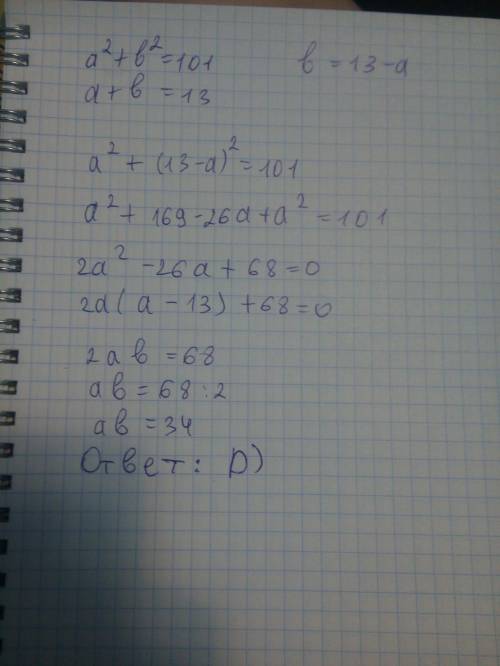 a² + b² = 101 b = 13 - a
a + b = 13
a² + (13 - a)² = 101
a² + 169 - 26a + a² = 101
2a² - 26a + 68 = 0
2a(a - 13) + 68 = 0
2ab = 68
ab = 68 : 2
ab = 34
Ответ: D)